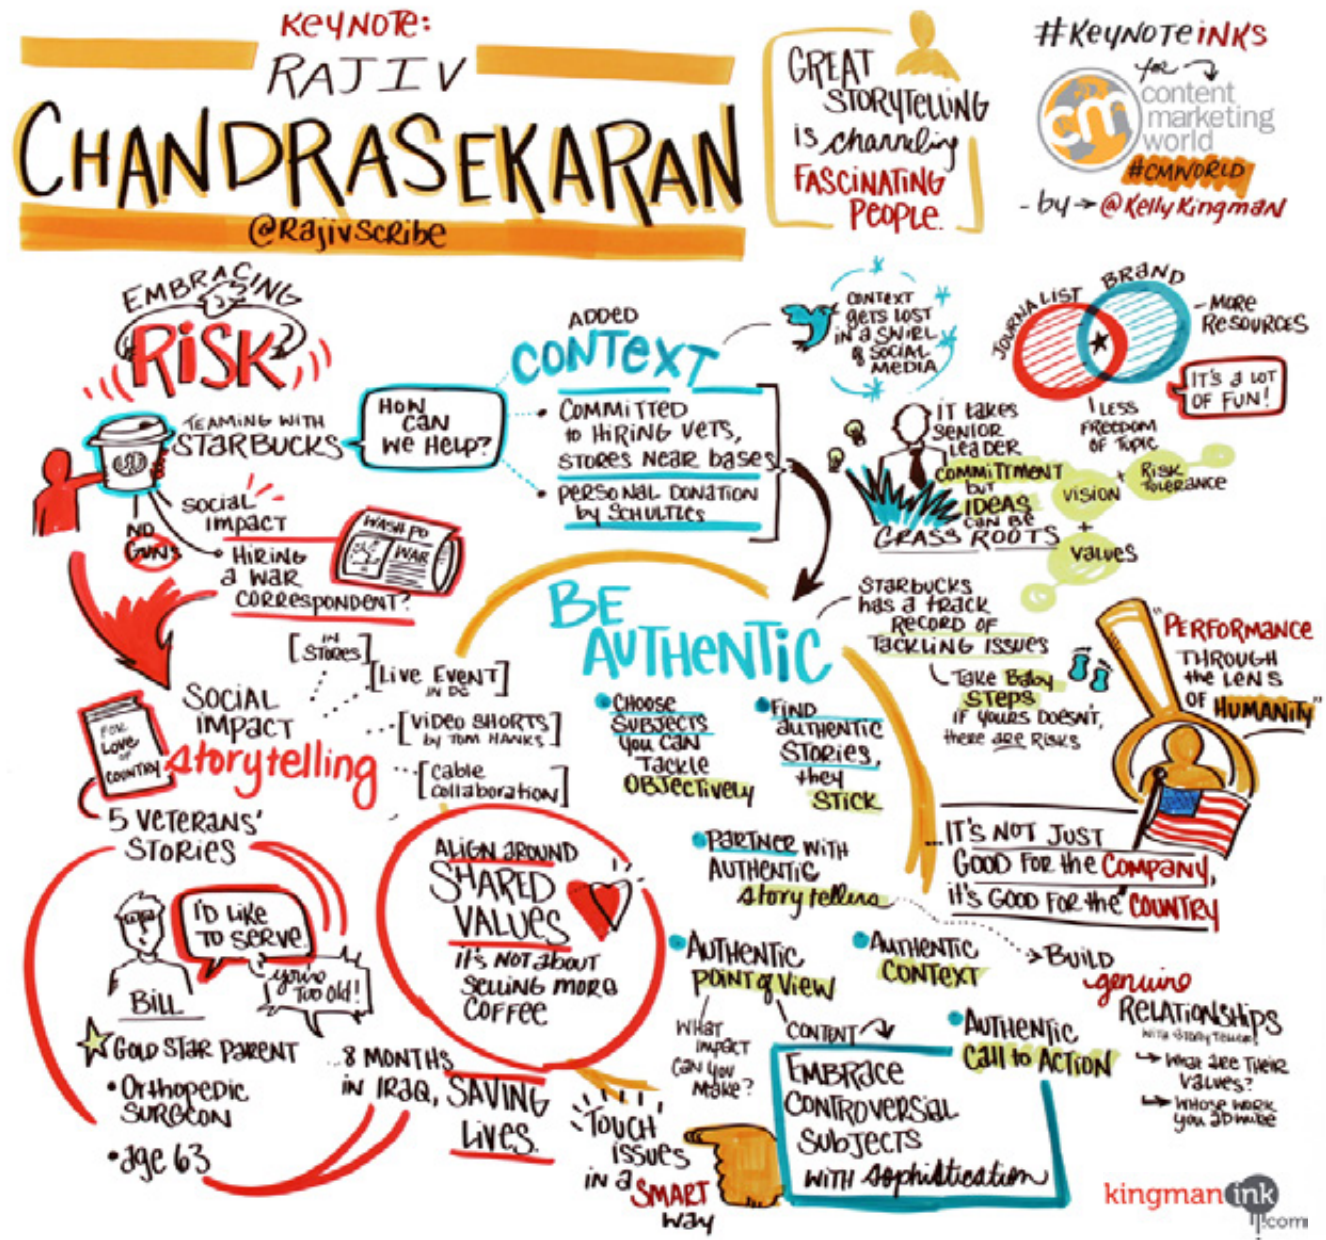 KEYNOTE:
RAJIV
CHANDRASEKARAN
@RajivScribe
GREAT
STORYTELLING
is channeling
FASCINATING
PEOPLE.
#KEYNOTEiNKS
for
content
marketing
world
cm
#CMWORLD
- by → @KellyKingman
EMBRACING
RISK
TEAMING WITH
STARBUCKS
HOW
CAN
WE HELP?
NO
GUNS
SOCIAL
IMPACT
HIRING
A WAR
CORRESPONDENT?
WASH PO
WAR
ADDED
CONTEXT
• COMMITTED
to HIRING VETS,
STORES NEAR bases
• PERSONAL DONATION
by SCHULTZES
CONTEXT
GETS LOST
IN A SWIRL
of SOCIAL
MEDIA
JOURNALIST
BRAND
- MORE
RESOURCES
IT'S a LOT
OF FUN!
LESS
FREEDOM
OF TOPIC
IT takes
SENIOR
LEADER
COMMITTMENT
but
IDEAS
CAN BE
GRASS ROOTS
VISION
+
RISK
TOLERANCE
+
VALUES
BE
AUTHENTIC
STARBUCKS
has a track
RECORD OF
TACKLING ISSUES
Take Baby
STEPS
IF YOURS DOESN'T,
there are RISKS
"PERFORMANCE
THROUGH
the LENS
OF HUMANITY"
FOR
LOVE
OF
COUNTRY
SOCIAL
IMPACT
storytelling
[IN STORES]
[LIVE EVENT
IN DC]
[VIDEO SHORTS
by TOM HANKS]
[cable
collaboration]
• CHOOSE
SUBJECTS
YOU CAN
TACKLE
OBJECTIVELY
• FIND
AUTHENTIC
STORIES,
they
STICK
• PARTNER WITH
AUTHENTIC
storytellers
...IT'S NOT JUST
GOOD FOR the COMPANY,
it's GOOD FOR the COUNTRY
5 VETERANS'
STORIES
I'D LIKE
TO SERVE.
you're
TOO old!
BILL
GOLD STAR PARENT
• Orthopedic
SURGEON
• age 63
..8 MONTHS
IN IRAQ, SAVING
LIVES.
ALIGN AROUND
SHARED
VALUES
it's NOT about
SELLING MORE
COFFEE
• AUTHENTIC
POINT of VIEW
WHAT
IMPACT
CAN YOU
MAKE?
• AUTHENTIC
CONTEXT
• AUTHENTIC
Call to ACTION
BUILD
genuine
RELATIONSHIPS
WITH STORYTELLERS
What are THEIR
VALUES?
WHOSE WORK
you ADMIRE
TOUCH
ISSUES
IN a
SMART
WAY
CONTENT
EMBRACE
CONTROVERSIAL
SUBJECTS
WITH sophistication
kingman ink
.com